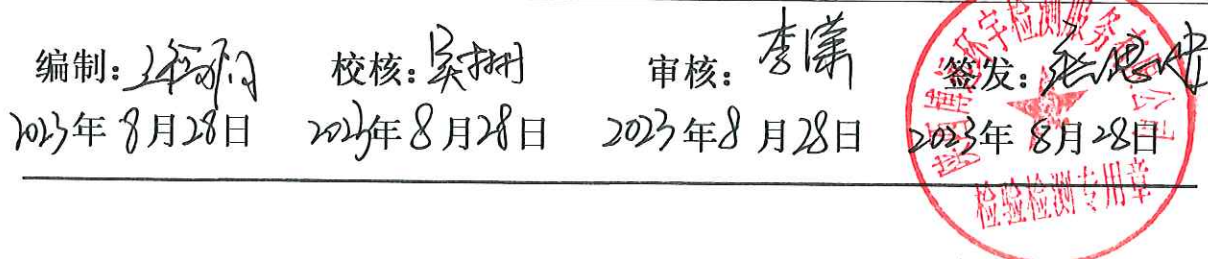 编制： 校核：吴珊 审核：李潇 签发：
2023年8月28日 2023年8月28日 2023年8月28日 2023年8月28日
环宇检测服务有限公司
检验检测专用章